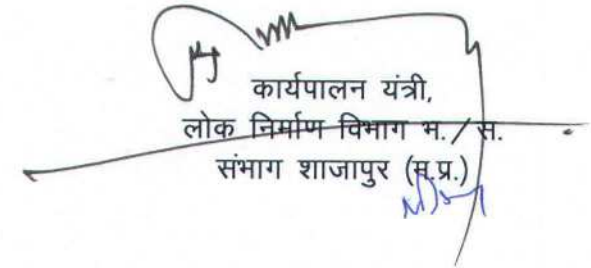 कार्यपालन यंत्री,
लोक निर्माण विभाग भ./स.
संभाग शाजापुर (म.प्र.)